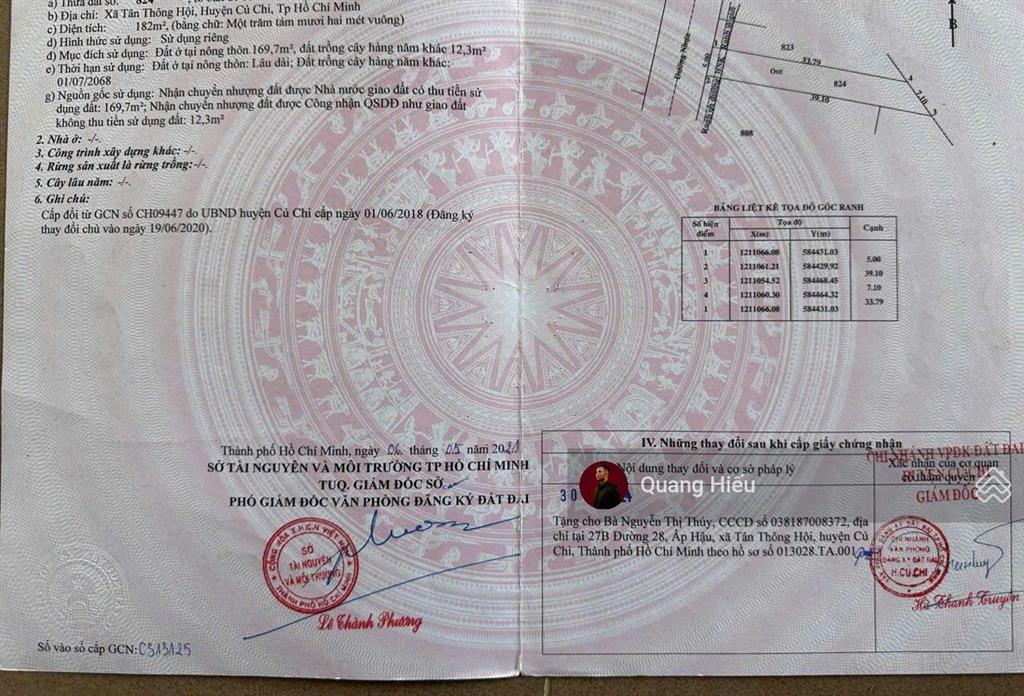 a) Thửa đất số: 824
b) Địa chỉ: Xã Tân Thông Hội, Huyện Củ Chi, Tp Hồ Chí Minh
c) Diện tích: 182m², (bằng chữ: Một trăm tám mươi hai mét vuông)
d) Hình thức sử dụng: Sử dụng riêng
đ) Mục đích sử dụng: Đất ở tại nông thôn 169,7m², đất trồng cây hàng năm khác 12,3m²
e) Thời hạn sử dụng: Đất ở tại nông thôn: Lâu dài; Đất trồng cây hàng năm khác:
01/07/2068
g) Nguồn gốc sử dụng: Nhận chuyển nhượng đất được Nhà nước giao đất có thu tiền sử
dụng đất: 169,7m²; Nhận chuyển nhượng đất được Công nhận QSDĐ như giao đất
không thu tiền sử dụng đất: 12,3m²
2. Nhà ở: -/-.
3. Công trình xây dựng khác: -/-.
4. Rừng sản xuất là rừng trồng: -/-.
5. Cây lâu năm: -/-.
6. Ghi chú:
Cấp đổi từ GCN số CH09447 do UBND huyện Củ Chi cấp ngày 01/06/2018 (Đăng ký
thay đổi chủ vào ngày 19/06/2020).
Thành phố Hồ Chí Minh, ngày 06 tháng 05 năm 2021
SỞ TÀI NGUYÊN VÀ MÔI TRƯỜNG TP HỒ CHÍ MINH
TUQ. GIÁM ĐỐC SỞ
PHÓ GIÁM ĐỐC VĂN PHÒNG ĐĂNG KÝ ĐẤT ĐAI
CỘNG HÒA X.H.C.N VIỆT NAM
SỞ
TÀI NGUYÊN
VÀ MÔI TRƯỜNG
THÀNH PHỐ HỒ CHÍ MINH
Lê Thành Phương
Số vào sổ cấp GCN: CS13125
B
Đường Nhựa
5.00
823
33.79
Ont
824
39.10
4
7.10
3
808
BẢNG LIỆT KÊ TỌA ĐỘ GÓC RANH
Số hiệu điểm Tọa độ Cạnh
X(m) Y(m)
1 1211066.08 584431.03
5.00
2 1211061.21 584429.92
39.10
3 1211054.52 584468.45
7.10
4 1211060.30 584464.32
33.79
1 1211066.08 584431.03
IV. Những thay đổi sau khi cấp giấy chứng nhận
Nội dung thay đổi và cơ sở pháp lý
Xác nhận của cơ quan
có thẩm quyền
CHI NHÁNH VPĐK ĐẤT ĐAI
HUYỆN CỦ CHI
GIÁM ĐỐC
Quang Hiếu
Tặng cho Bà Nguyễn Thị Thúy, CCCD số 038187008372, địa
chỉ tại 27B Đường 28, Ấp Hậu, xã Tân Thông Hội, huyện Củ
Chi, Thành phố Hồ Chí Minh theo hồ sơ số 013028.TA.001
CHI NHÁNH
VĂN PHÒNG
ĐĂNG KÝ ĐẤT ĐAI
H.CỦ CHI
Hà Thanh Truyền